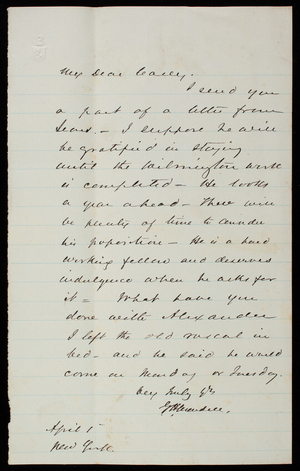 My Dear Casey,
I send you
a part of a letter from
Sears. - I suppose he will
be gratified in staying
until the Wilmington work
is completed - He looks
a year ahead - There will
be plenty of time to consider
his proposition - He is a hard
working fellow and deserves
indulgence when he asks for
it - What have you
done with Alexander
I left the old rascal in
bed - and he said he would
come on Monday or Tuesday.
Very Truly Yrs
April 1
New York.